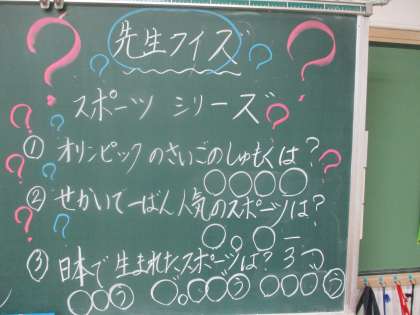 先生クイズ
スポーツ シリーズ
① オリンピックのさいごのしゅもくは？
○○○○
② せかいで一ばん人気のスポーツは？
○。○ー
③ 日本で生まれたスポーツは？3つ
○○○う ○。○○○う ○○○○う